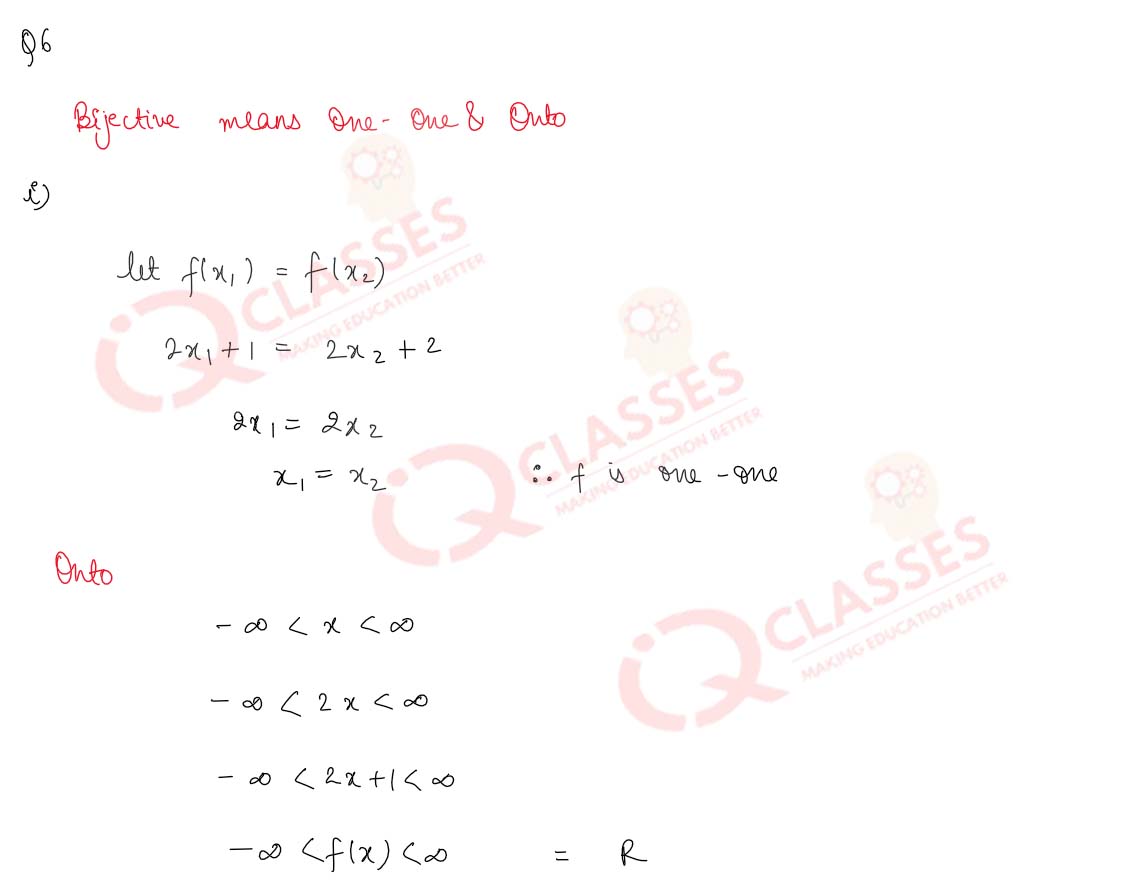 Q6
Bijective means One-One & Onto
i)
let f(x₁) = f(x₂)
2x₁ + 1 = 2x₂ + 2
2x₁ = 2x₂
x₁ = x₂ ∴ f is one-one
Onto
-∞ < x < ∞
-∞ < 2x < ∞
-∞ < 2x+1 < ∞
-∞ < f(x) < ∞ = R
iQ CLASSES
MAKING EDUCATION BETTER
iQ CLASSES
MAKING EDUCATION BETTER
iQ CLASSES
MAKING EDUCATION BETTER